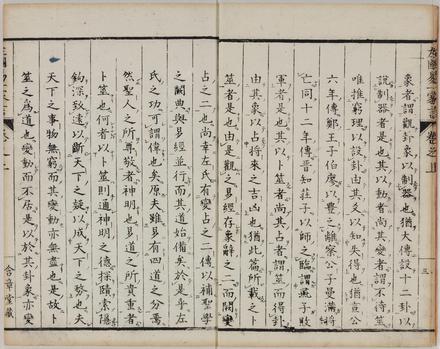 象者謂觀卦象以制器也猶傳設十二卦以
說制器者是也其以動者尚其變者謂不待筮
唯推窮理以設卦由其爻以知失得也猶宣公
六年傳鄭王子伯廖以豐之離察公子曼滿將
亡同十二年傳晉知莊子以師之臨謂彘子敗
軍者是也其以卜筮者尚其占者謂筮而得卦
由其象以占將來之吉凶也猶此篇所載之卜
筮者是也由是觀之易經存象辭之二而闕變
占之二也尚幸左氏有變占之二傳以補聖學
之闕典與易經並行而其道始備矣於是乎左
氏之功可謂偉也矣原夫雖易有四道之分焉
然聖人之所尊敬者神明也易道之所貴重者
卜筮也何者以卜筮則通神明之德探賾索隱
鉤深致遠以斷天下之疑以成天下之務也夫
天下之事物無窮而其變動亦無盡也是故卜
筮之爲道也變動而不居是以於其卦象亦變
三
含章堂藏